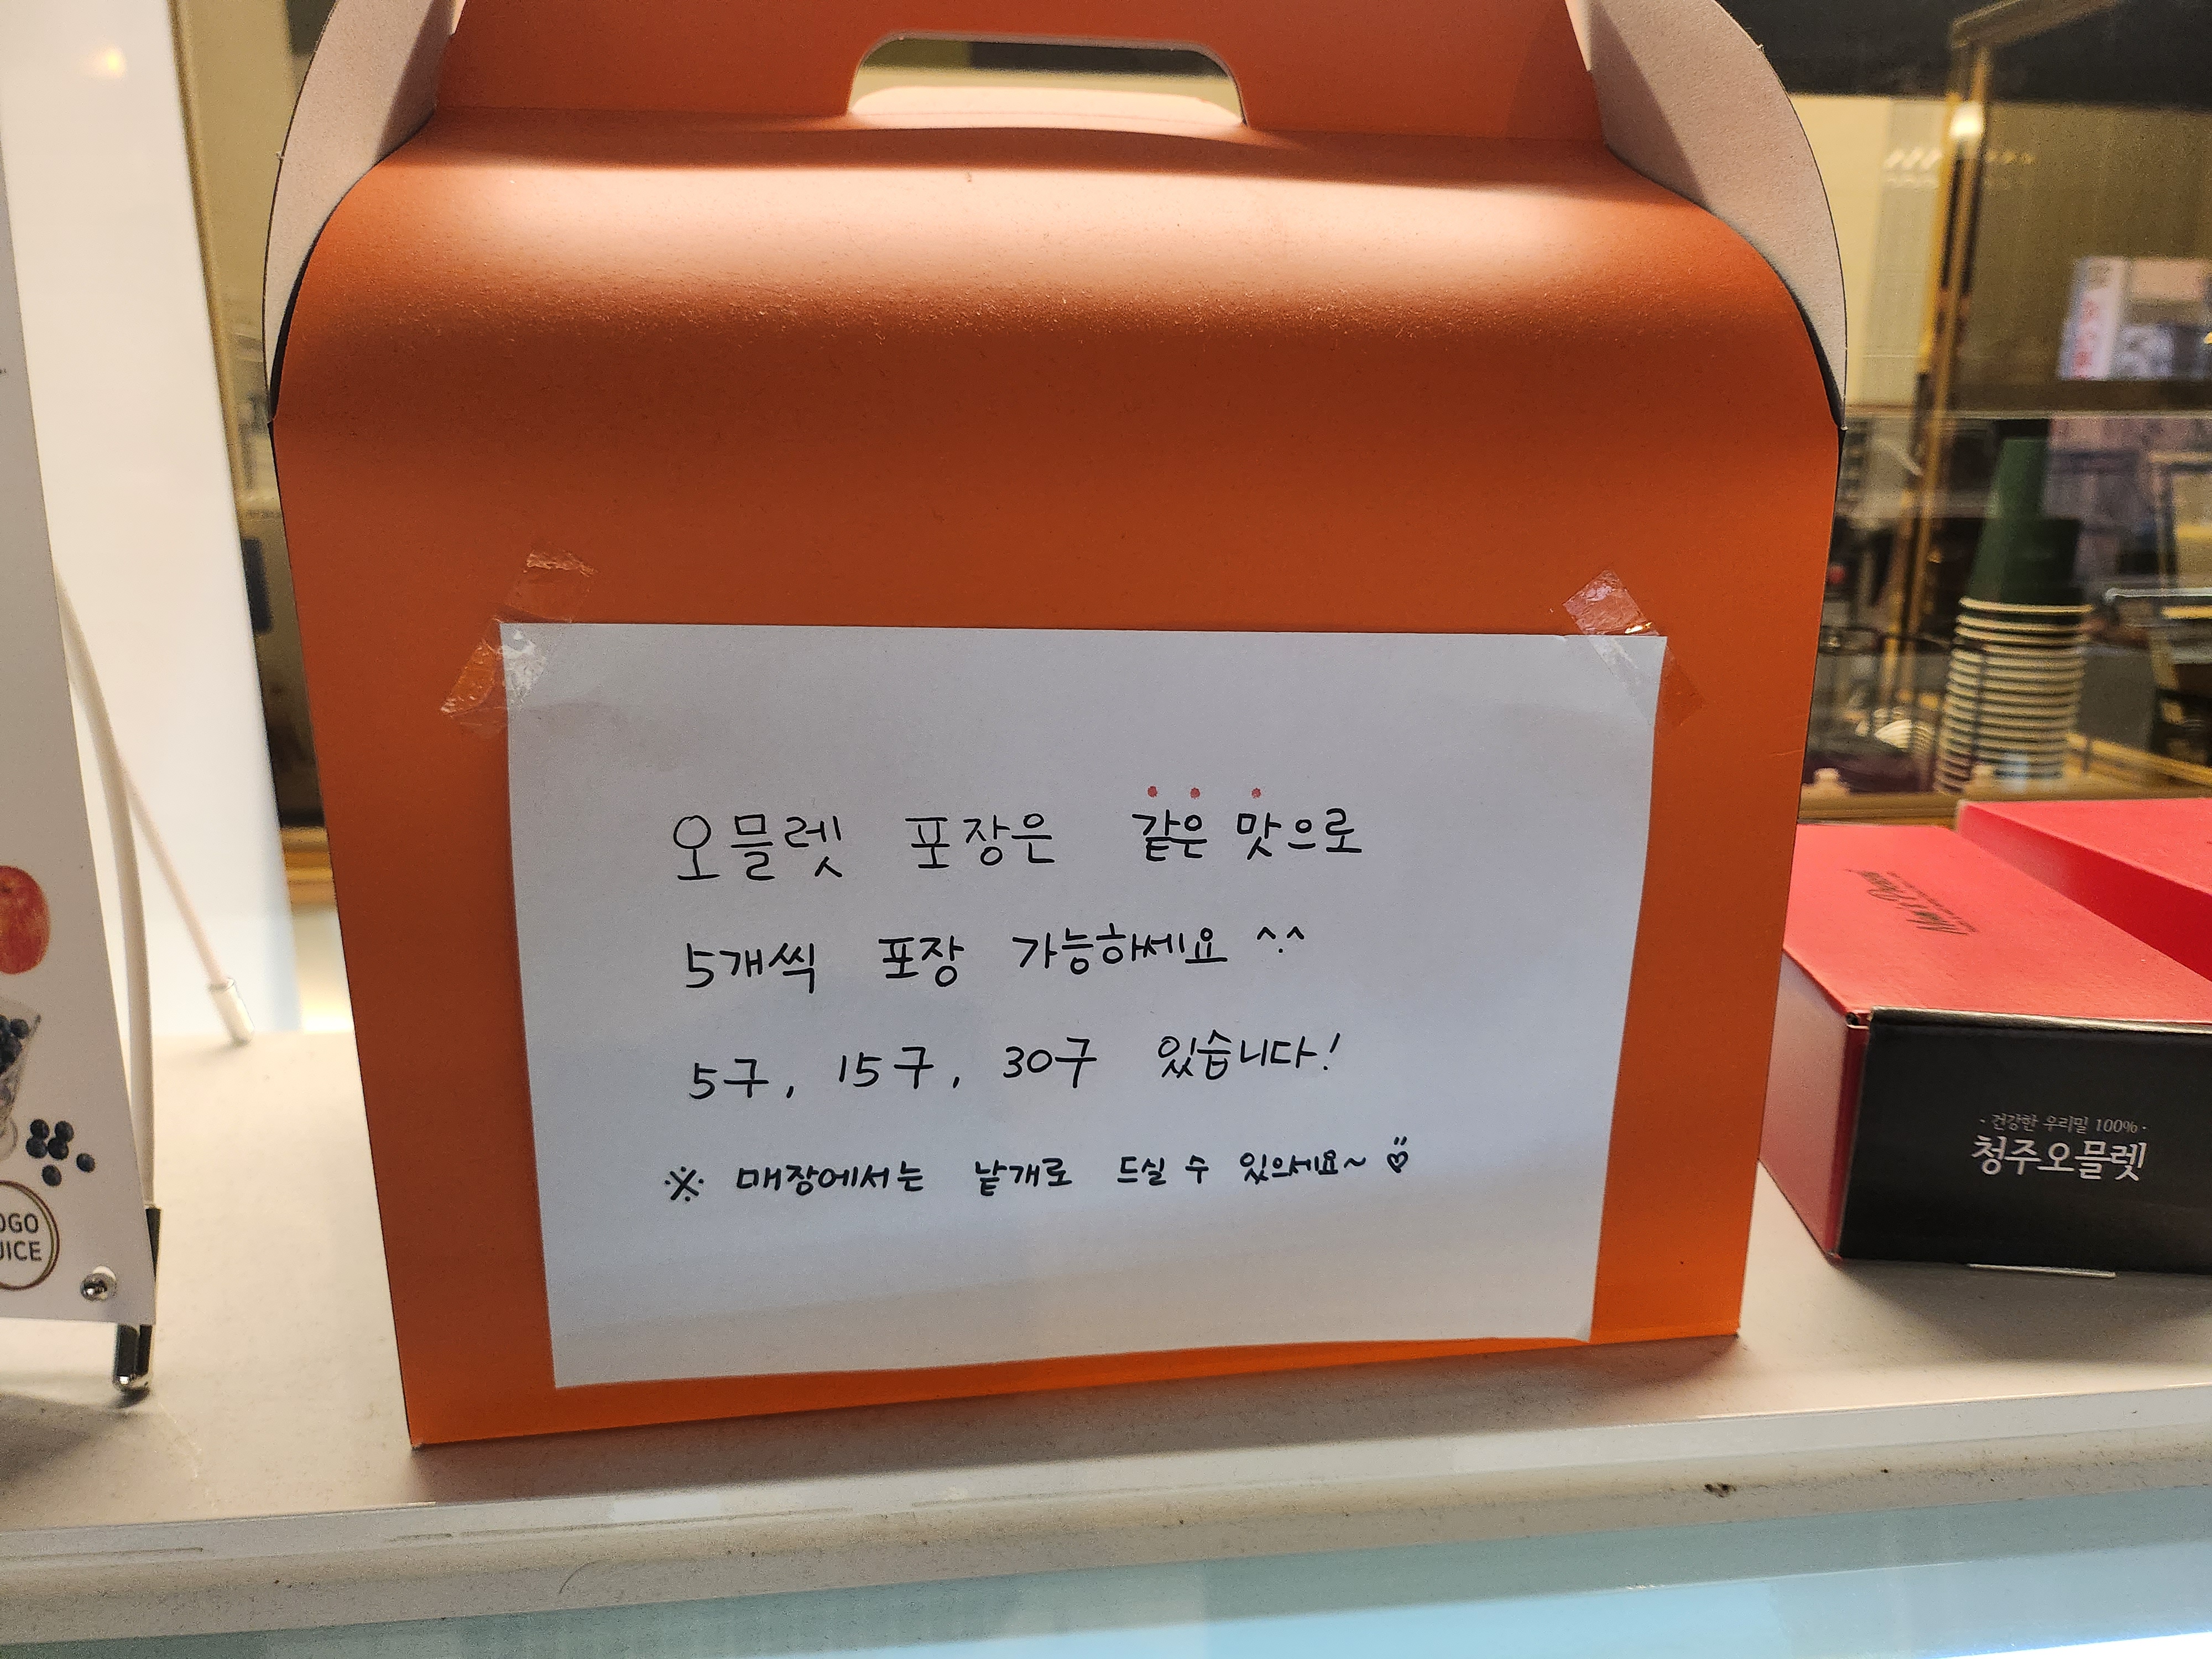 오믈렛 포장은 같은 맛으로
5개씩 포장 가능하세요 ^.^
5구, 15구, 30구 있습니다!
※ 매장에서는 낱개로 드실 수 있으세요~
- 건강한 우리밀 100% -
청주오믈렛
OGO
UICE